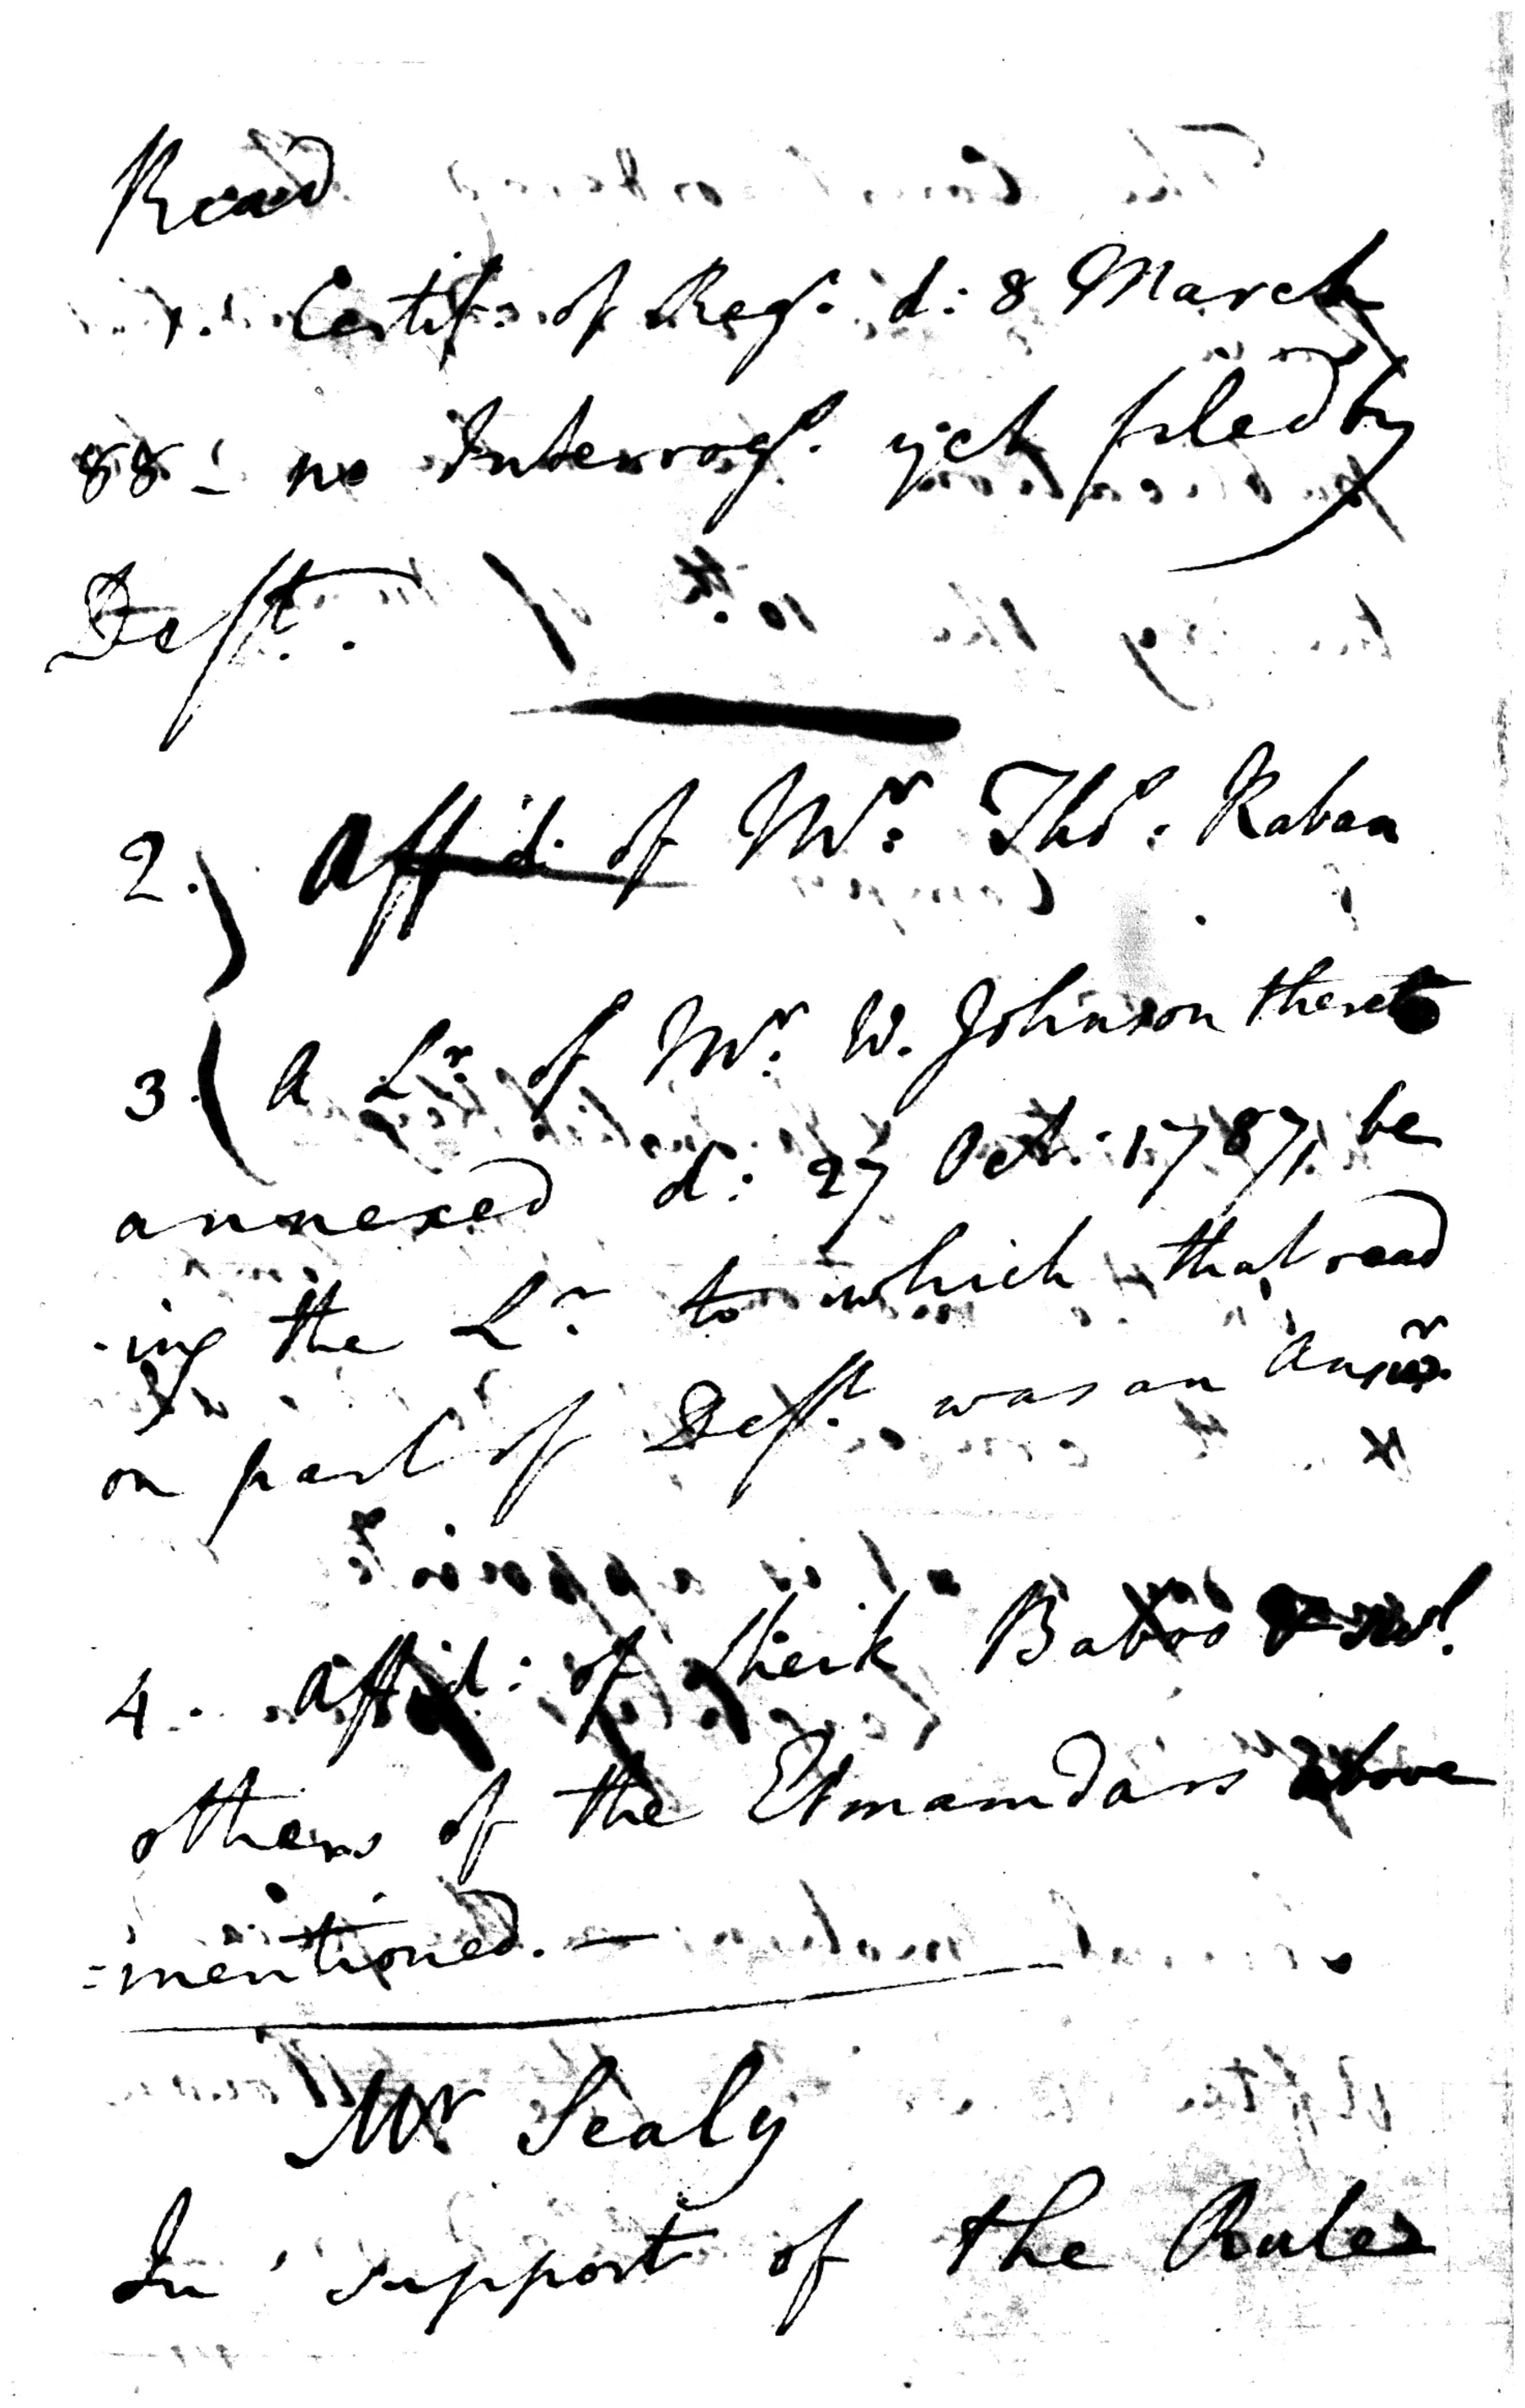 Read
1. Certif: of Regr. d: 8 March
88 - no Interrogs. yet filed by
Deft..
2. Affid. of Mr. Thos. Raban
3. A Lr. of Mr. W. Johnson thereto
annexed d: 27 Oct: 1787, be
-ing the Lr. to which that read
on part of Deft. was an Answr.
4. Affid: of Sheik Baboo & sevl.
others of the Etmamdars above
=mentioned. —
Mr Sealy
In support of the Rules